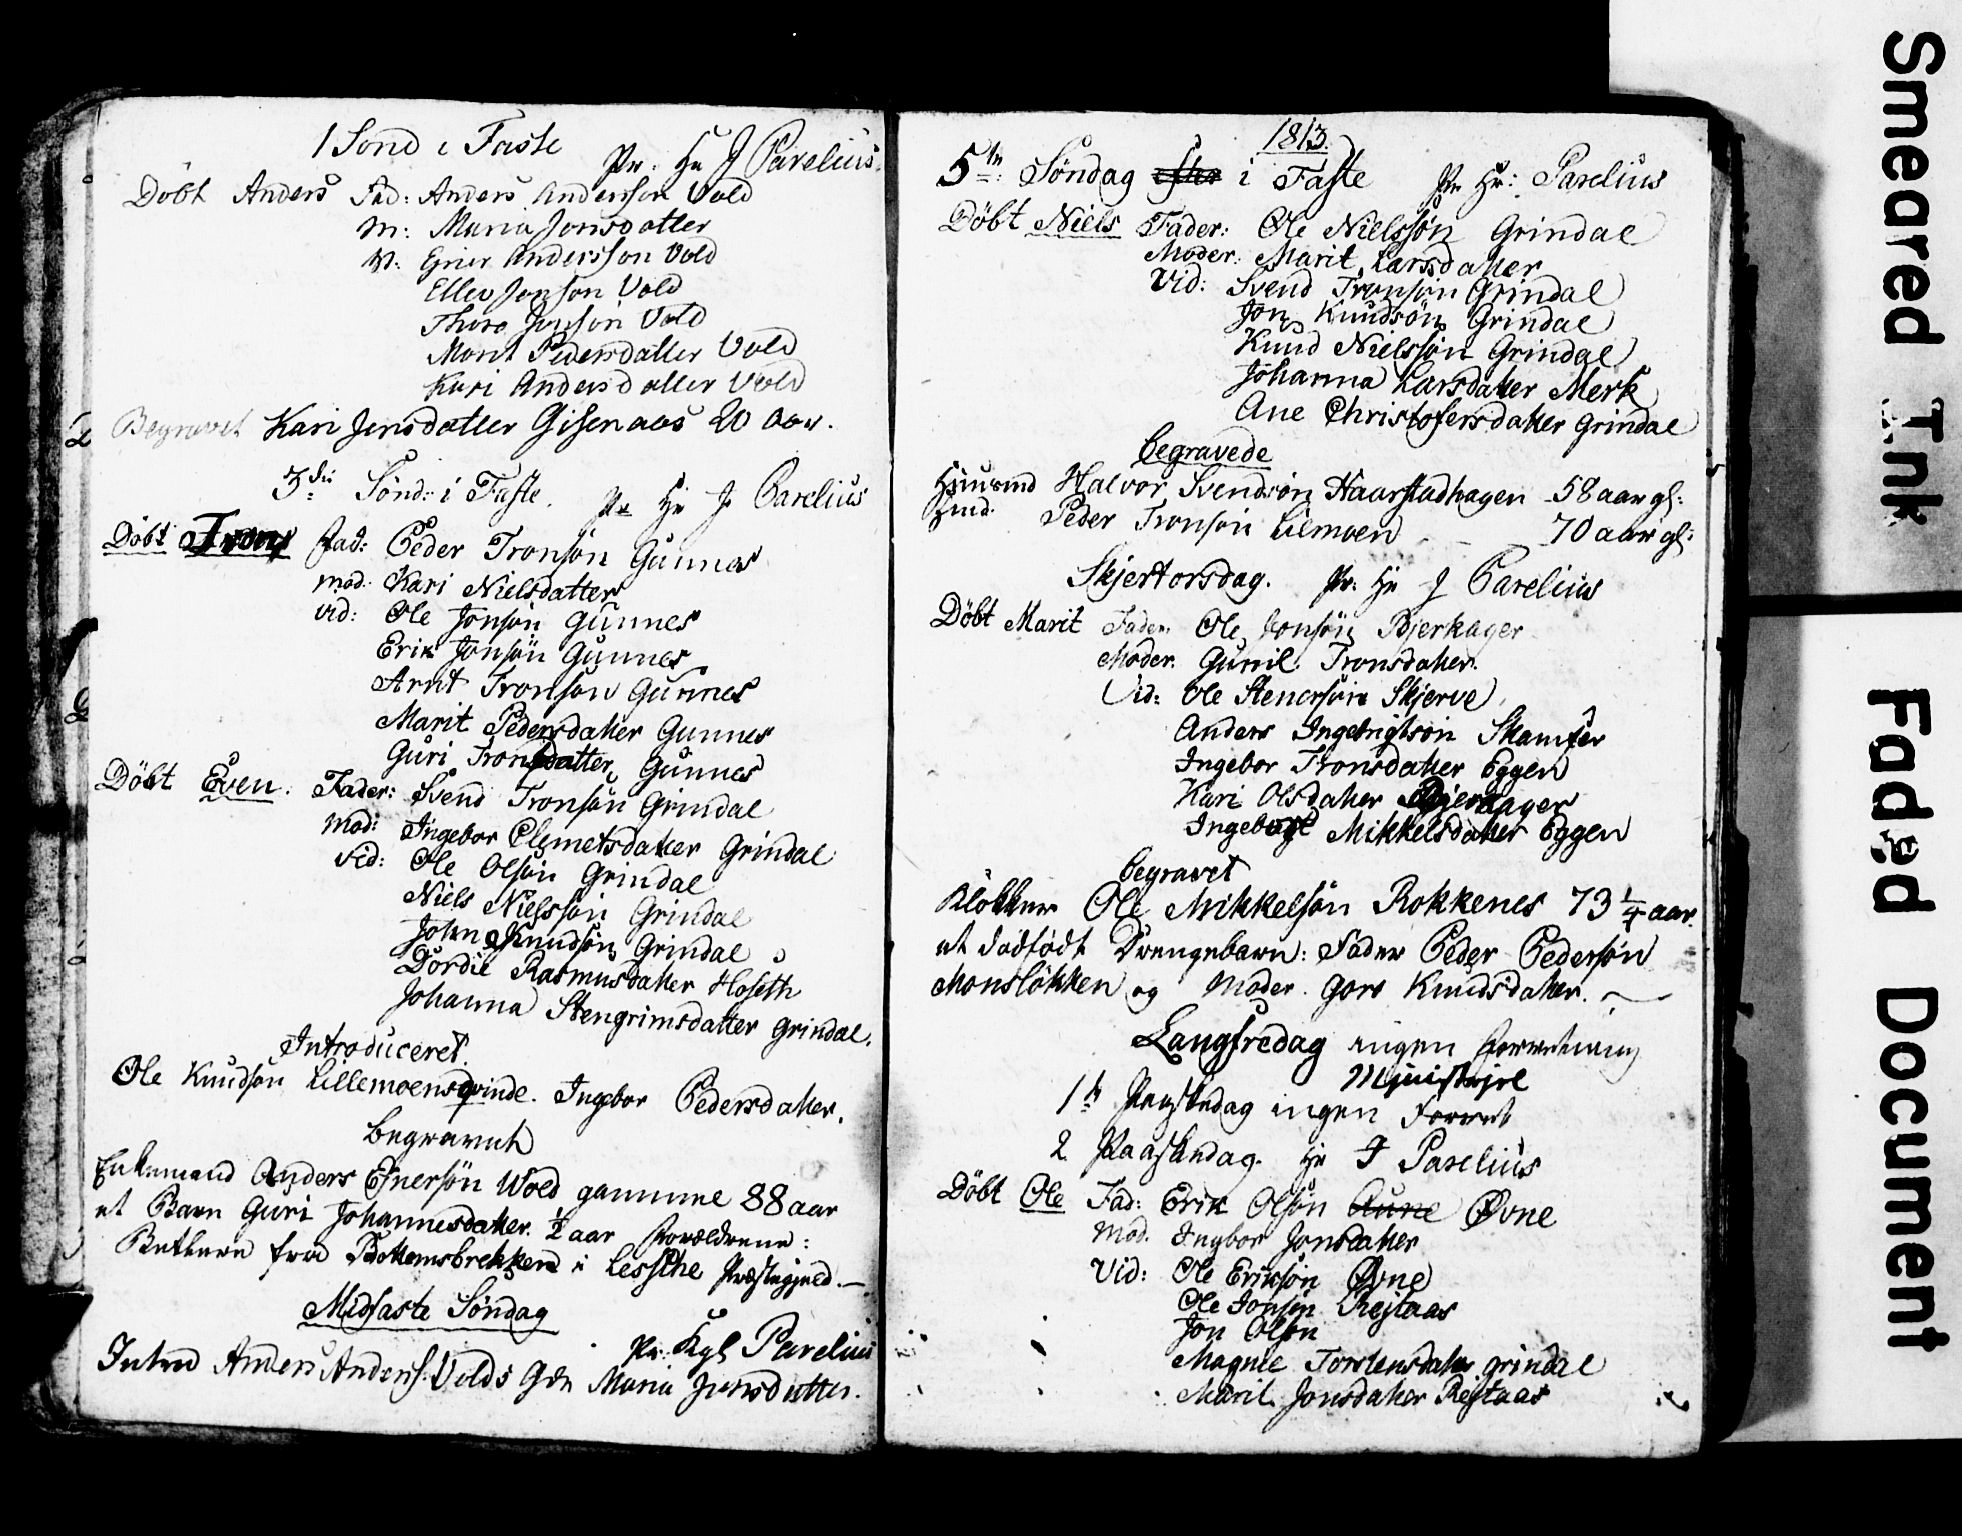 1 Sønd i Faste
Pr: Hr J Parelius.
Döbt Anders Fad: Anders Andersson Vold
M: Maria Jonsdatter
V: Ejner Andersson Vold
Ellev Jonson Vold
Thore Jonson Vold
Marit Pedersdatter Vold
Kari Andersdatter Vold
Begravet Kari Jensdatter Gisenaas 20 aar.
3die Sönd: i Faste. Pr Hr J Parelius
Döbt Tron Fad: Peder Tronsön Gunnes
mod: Kari Nielsdatter
vid: Ole Jonsön Gunnes
Erik Jonsön Gunnes
Arnt Tronson Gunnes
Marit Pedersdatter Gunnes
Guri Tronsdatter Gunnes
Döbt Even. Fader: Svend Tronsön Grindal
Mod: Ingebor Clemetsdatter Grindal
vid: Ole Olsön Grindal
Niels Nielssön Grindal
John Knudsön Grindal
Dordie Rasmusdatter Hoseth
Johanna Stengrimsdatter Grindal.
Introduceret.
Ole Knudsön Lillemoens qvinde. Ingebor Pedersdatter.
begravet
Enkemand Anders Esnersön Wold gammel 88 aar
et Barn Guri Johannesdatter. ½ aar Forældrene:
Betlere fra Bottemsbrekken i Lessche Præstegjeld.—
Midfaste Söndag
Pr: Kgl Parelius
Intro Anders Anders: Volds Qde Maria Jonsdatter.
1813.
5te: Söndag efter i Faste Pr Hr: Parelius
Döbt Niels Fader: Ole Nielssön Grindal
Moder: Marit Larsdatter
Vid: Svend Tronsön Grindal
Jon Knudsön Grindal
Knud Nielssön Grindal
Johanna Larsdatter Merk
Ane Christofersdatter Grindal
begravede
Huusmd Halvor Svendsön Haarstadhagen 58 aar gl:
Peder Tronsön Lilmoen - - 70 aar gl:
Skjertorsdag. Pr: Hr J Parelius
Döbt Marit Fader: Ole Jonsön Bjerkager
Moder. Gunil Tronsdatter.
Vid: Ole Stenersön Skjerve
Anders Ingebrigtsön Skamfer
Ingebor Tronsdatter Eggen
Kari Olsdatter Bjerkager
Ingeborg Mikkelsdatter Eggen
begravet
Klokker Ole Mikkelsön Rokkenes 73 ¼ aar.
et dödfödt Drengebarn: Fader Peder Pedersön
Monslökken og Moder. Goro Knudsdatter.
Langfredag ingen Forretning
Ministrjel
1te Paaskedag ingen Forret
2 Paaskedag. Hr J Parelius
Döbt Ole Fad: Erik Olsön Aune Övne
Mod. Ingbor Jonsdatter
Vid: Ole Eriksön Övne
Ole Jonsön Rejtaas
Jon Olsön
Magnie Torstensdatter grindal
Marit Jonsdatter Rejtaas
Smeared Ink
Faded Document